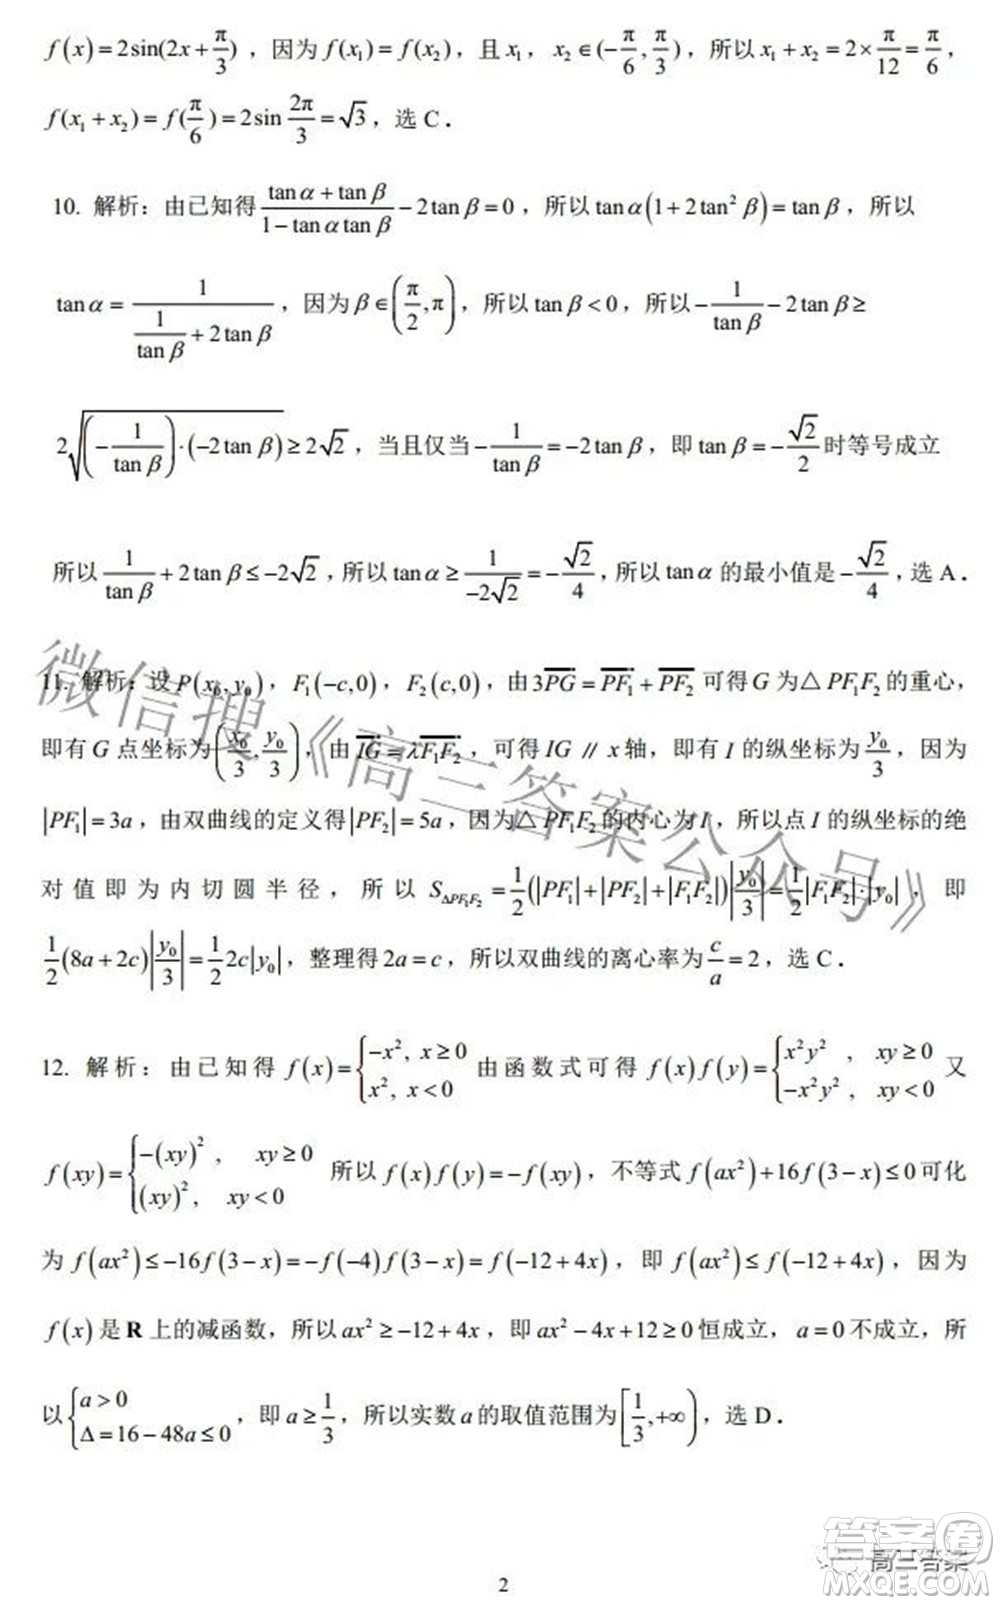 f(x)=2sin(2x+π/3)，因为f(x₁)=f(x₂)，且x₁，x₂∈(-π/6,π/3)，所以x₁+x₂=2×π/12=π/6，
f(x₁+x₂)=f(π/6)=2sin 2π/3=√3，选 C．
10. 解析：由已知得(tanα+tanβ)/(1-tanαtanβ)-2tanβ=0，所以tanα(1+2tan²β)=tanβ，所以
tanα=1/(1/tanβ+2tanβ)，因为β∈(π/2,π)，所以tanβ<0，所以-1/tanβ-2tanβ≥
2√((-1/tanβ)·(-2tanβ))≥2√2，当且仅当-1/tanβ=-2tanβ，即tanβ=-√2/2时等号成立
所以1/tanβ+2tanβ≤-2√2，所以tanα≥1/(-2√2)=-√2/4，所以tanα的最小值是-√2/4，选 A．
11. 解析：设P(x₀,y₀)，F₁(-c,0)，F₂(c,0)，由3PG=PF₁+PF₂可得G为△PF₁F₂的重心，
即有G点坐标为(x₀/3,y₀/3)，由IG=λF₁F₂，可得IG∥x轴，即有I的纵坐标为y₀/3，因为
|PF₁|=3a，由双曲线的定义得|PF₂|=5a，因为△PF₁F₂的内心为I，所以点I的纵坐标的绝
对值即为内切圆半径，所以S△PF₁F₂=1/2(|PF₁|+|PF₂|+|F₁F₂|)|y₀/3|=1/2|F₁F₂|·|y₀|，即
1/2(8a+2c)|y₀/3|=1/2 2c|y₀|，整理得2a=c，所以双曲线的离心率为c/a=2，选 C．
12. 解析：由已知得f(x)={-x², x≥0 x², x<0 由函数式可得f(x)f(y)={x²y², xy≥0 -x²y², xy<0 又
f(xy)={-(xy)², xy≥0 (xy)², xy<0 所以f(x)f(y)=-f(xy)，不等式f(ax²)+16f(3-x)≤0可化
为f(ax²)≤-16f(3-x)=-f(-4)f(3-x)=f(-12+4x)，即f(ax²)≤f(-12+4x)，因为
f(x)是R上的减函数，所以ax²≥-12+4x，即ax²-4x+12≥0恒成立，a=0不成立，所
以{a>0 Δ=16-48a≤0，即a≥1/3，所以实数a的取值范围为[1/3,+∞)，选 D．
2
微信搜《高三答案公众号》
高三答案
答案卷
MXQE.COM